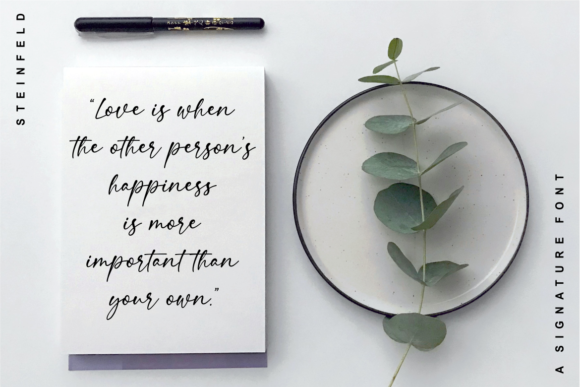 STEINFELD
“Love is when
the other person's
happiness
is more
important than
your own.”
A SIGNATURE FONT